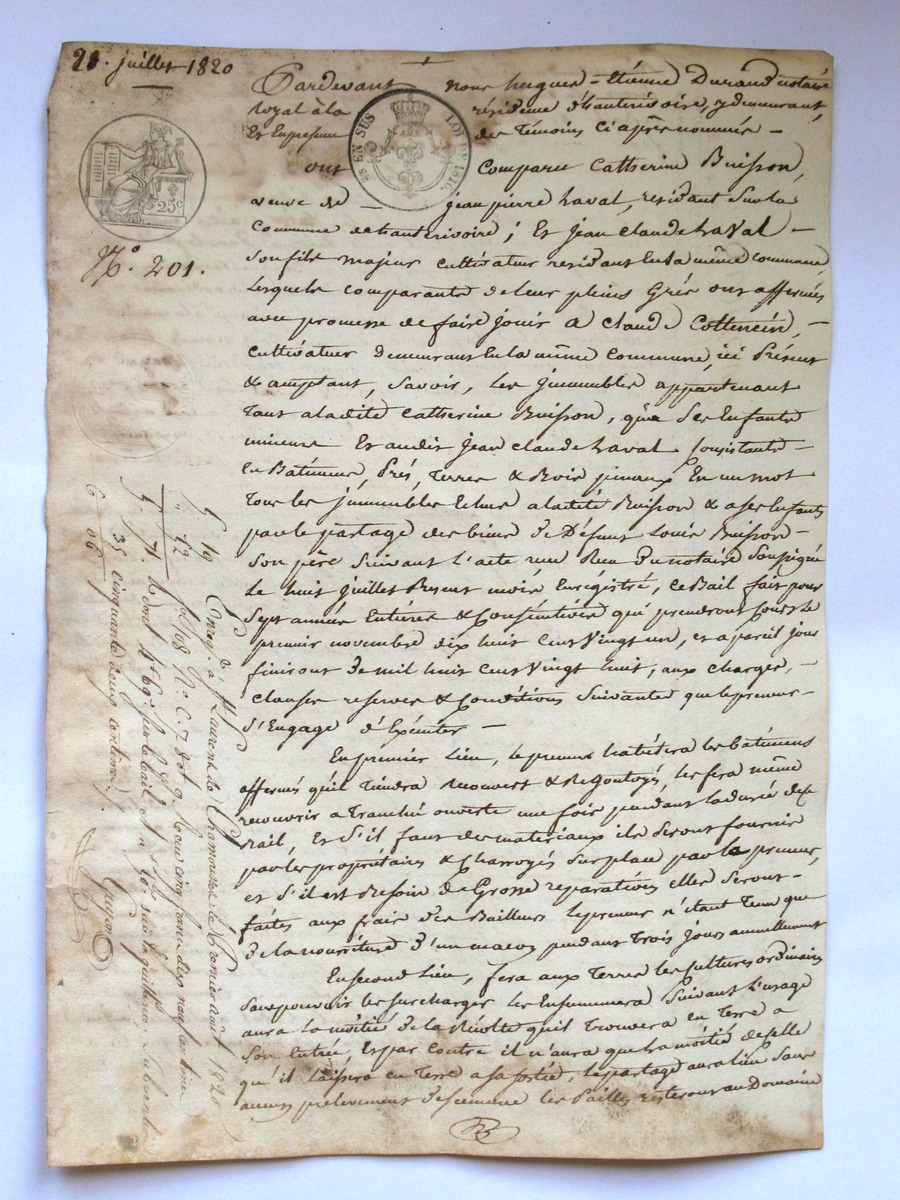 21. juillet 1820
Pardevant nous hugues-Etienne Durand notaire
Royal à la résidence d'hauterivoire, y demeurant,
Et En présence des Témoins Ci après nommés -
EN SUS
LOI DE 1816
25 c
ont Comparu Catherine Buisson,
veuve de - jean pierre Laval, residant Sur la
Commune de hauterivoire; Et jean Claude Laval -
N.º 201.
Son fils majeur cultivateur residant En la même commune,
Lesquels comparants de leur pleins Grés ont affermés
avec promesse de faire jouir a Claude Cottencin, -
Cultivateur demeurant En la même Commune, ici Présent
& acceptant, Savoir, Les jmmeubles appartenant
Tant a ladite Catherine Buisson, qu'a Ses Enfants
mineurs Et audit jean Claude Laval Consistants -
En Bâtiments, Prés, Terres & Bois pinaux En un mot
Tous les jmmeubles Echus a ladité Buisson & a ses Enfants
par le partage des biens de Défunt Louis Buisson -
Son père Suivant l'acte reçu Du notaire Soussigné
Le huit juillet Present mois Enregistré, Ce Bail fait pour
Sept années Entières & Consécutives qui prendront Cours le
premier novembre dix huit Cent Vingt un, et a pareil jour
finiront De mil huit Cent Vingt huit, aux Charges, -
Clauses reserves & Conditions Suivantes que le preneur -
S'Engage d'Exécuter -
En premier Lieu, le preneur habitera les bâtiments
affermés qu'il Tiendra recouvert & Regoutoyés, les fera même
recouvrir a Tranché ouverte une fois pendant la durée de ce
Bail, Et S'il faut des materiaux ils Seront fournis
par les propriétaires & Charroyés Sur place par le preneur,
et S'il est Besoin de Grosse reparations elles Seront -
faites aux frais des Bailleurs le preneur n'étant Tenu que
de la nourriture d'un maçon pendant Trois jours annuellement
En second Lieu, fera aux Terres les Cultures ordinaires
Sans pouvoir les Surcharger les Ensemmera Suivant l'usage
aura la moitié de la Récolte qu'il Trouvera en Terre a
Son Entrée, Et par Contre il n'aura que la moitié de celle
qu'il laissera en Terre a sa Sortie, le partage aura lieu Sans
aucun prélevement de semence les Pailles resteront au Domaine
Enreg. à St Laurent de Chamousset le Premier aout 1820
fol. 68 Rº C. 7 8 et 9. Reçu cinq francs dix neuf centimes
cinquante deux centimes